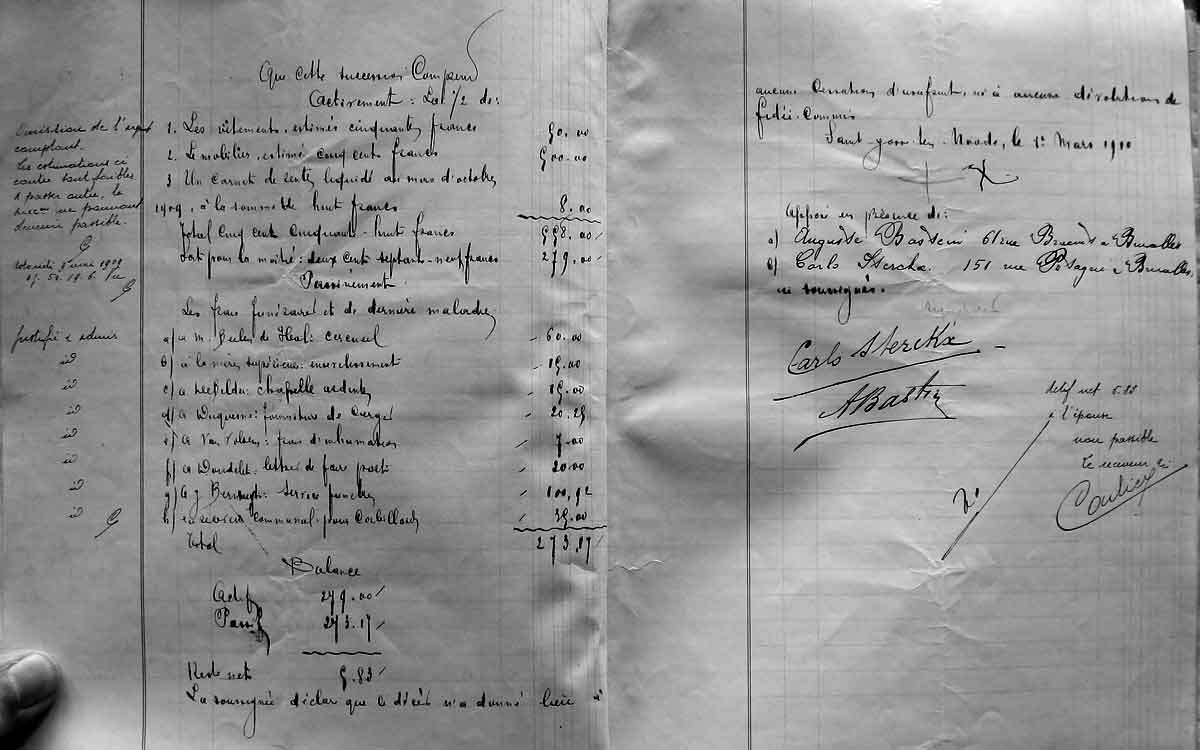 Que cette succession Comprend
Activement: La 1/2 de:
1. Les vêtements, estimés cinquante francs 50.00
2. Le mobilier, estimé cinq cent francs 500.00
3 Un carnet de rente liquidé au mois d'octobre
1909, à la somme de huit francs 8.00
Total cinq cent cinquante-huit francs 558.00
Soit pour la moitié: deux cent septante-neuf francs 279.00
Passivement
Les frais funéraires et de dernière maladie
a) à M. de Heal: cercueil 60.00
b) à la mère supérieure: ensevelissement 15.00
c) a chapelle ardente 15.00
d) a Duquesne: fourniture de cierges 20.25
e) a Van Volsem: frais d'inhumation 7.00
f) a Dondelet: lettres de faire part 20.00
g) a J. service funèbre 100.92
h) au service communal: pour Corbillard 35.00
Total 273.17
Balance
Actif 279.00
Passif 273.17
Reste net 5.83
La soussignée déclare que le décès n'a donné lieu à
Omission de l'argent
comptant.
Les estimations ci
contre sont faibles
à passer outre, la
ne pouvant
devenir passible.
Justifié & admis
id
id
id
id
id
id
id
aucune Cessation d'usufruit, ni à aucune dévolution de
fidéi-Commis
Saint-Josse-ten-Noode, le 1er Mars 1910
Apposé en présence de:
a) Auguste Bastin 61 rue à Bruxelles
b) Carlo Sterckx 151 rue à Bruxelles
ci soussignés.
Carlo Sterckx
ABastin
actif net 5.83
à l'épouse
non passible
Le receveur